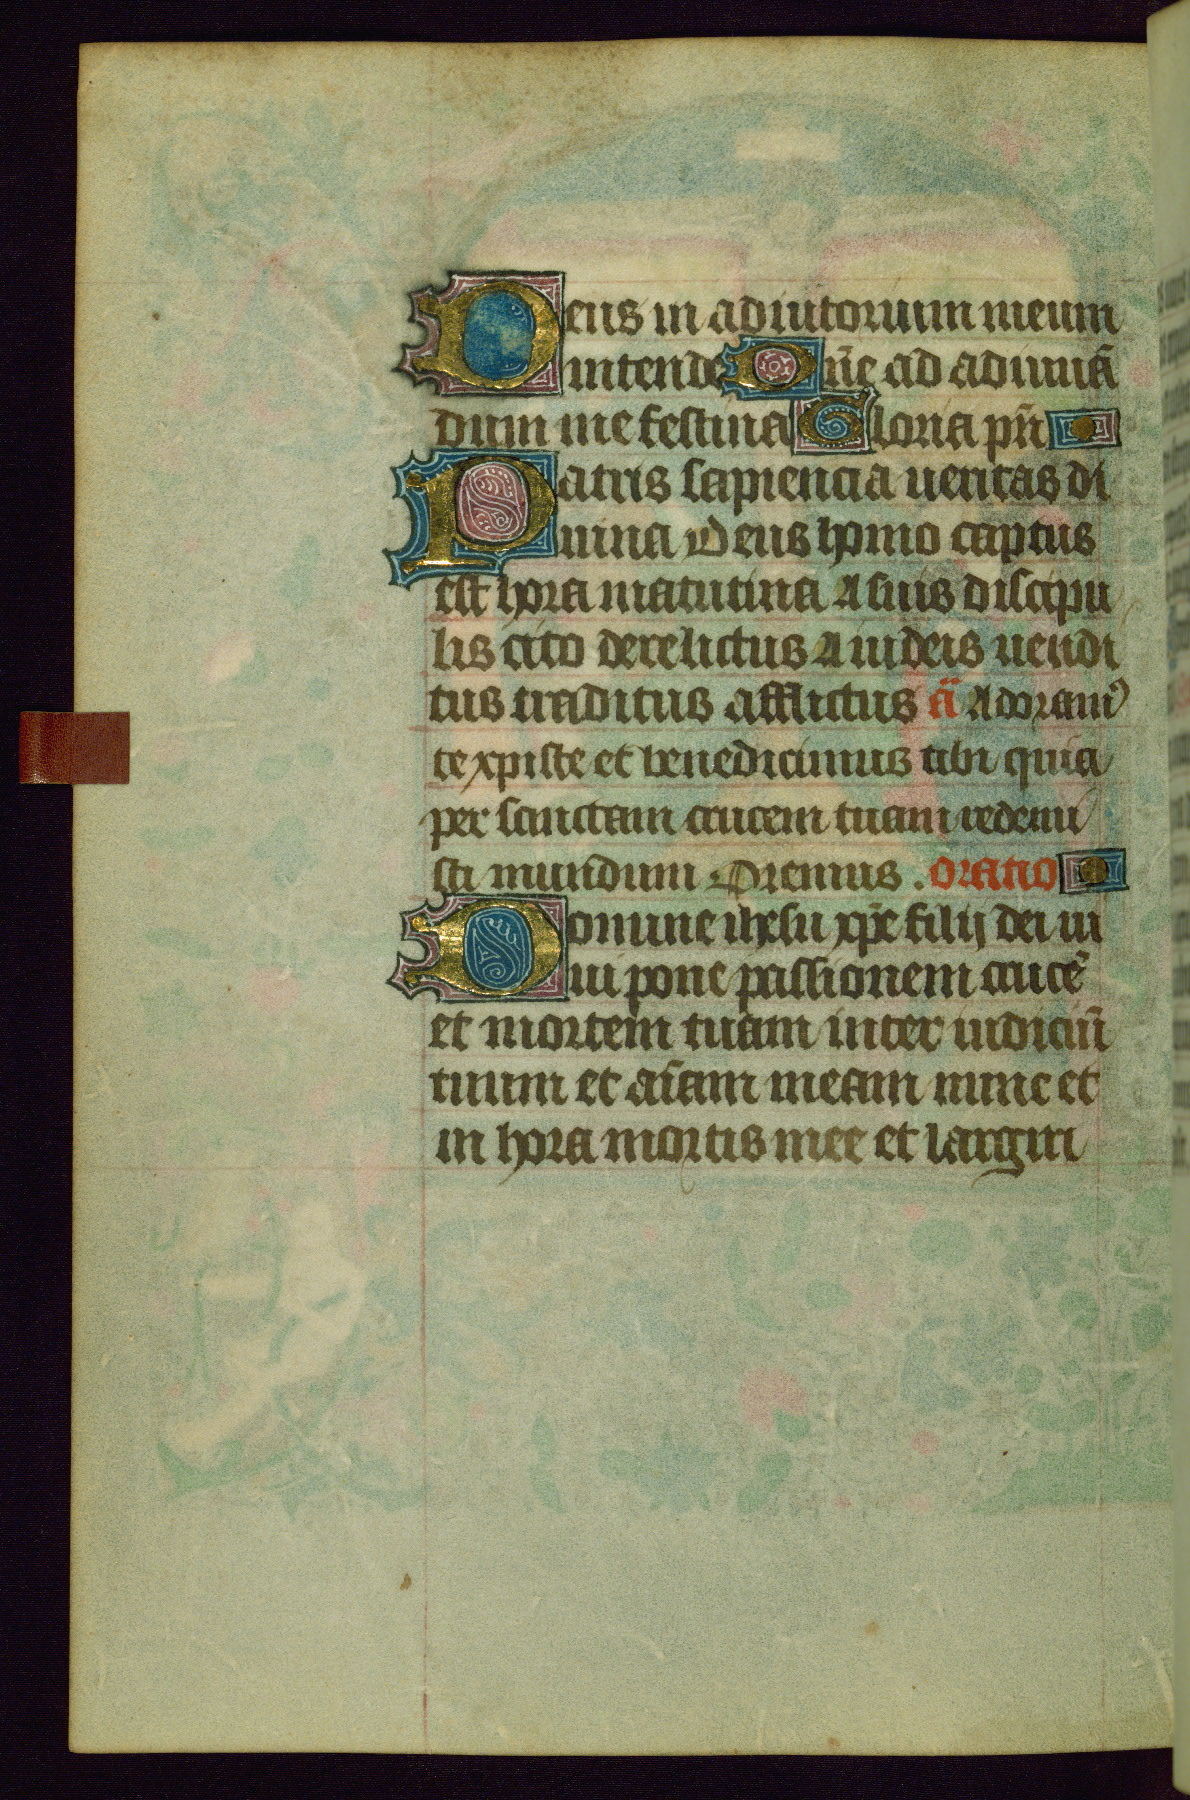 Deus in adiutorium meum
intende Dn̄e ad adiuuā
dum me festina Gloria pr̄i
Patris sapiencia ueritas di
uina Deus homo captus
est hora matutina A suis discipu
lis cito derelictus A iudeis uendi
tus traditus afflictus ā Adoram⁹
te xpiste et benedicimus tibi quia
per sanctam crucem tuam redemi
sti mundum Oremus . oratio
Domine ihesu xp̄e filij dei ui
ui pone passionem crucē
et mortem tuam inter iudiciū
tuum et aīam meam nunc et
in hora mortis mee et largiri